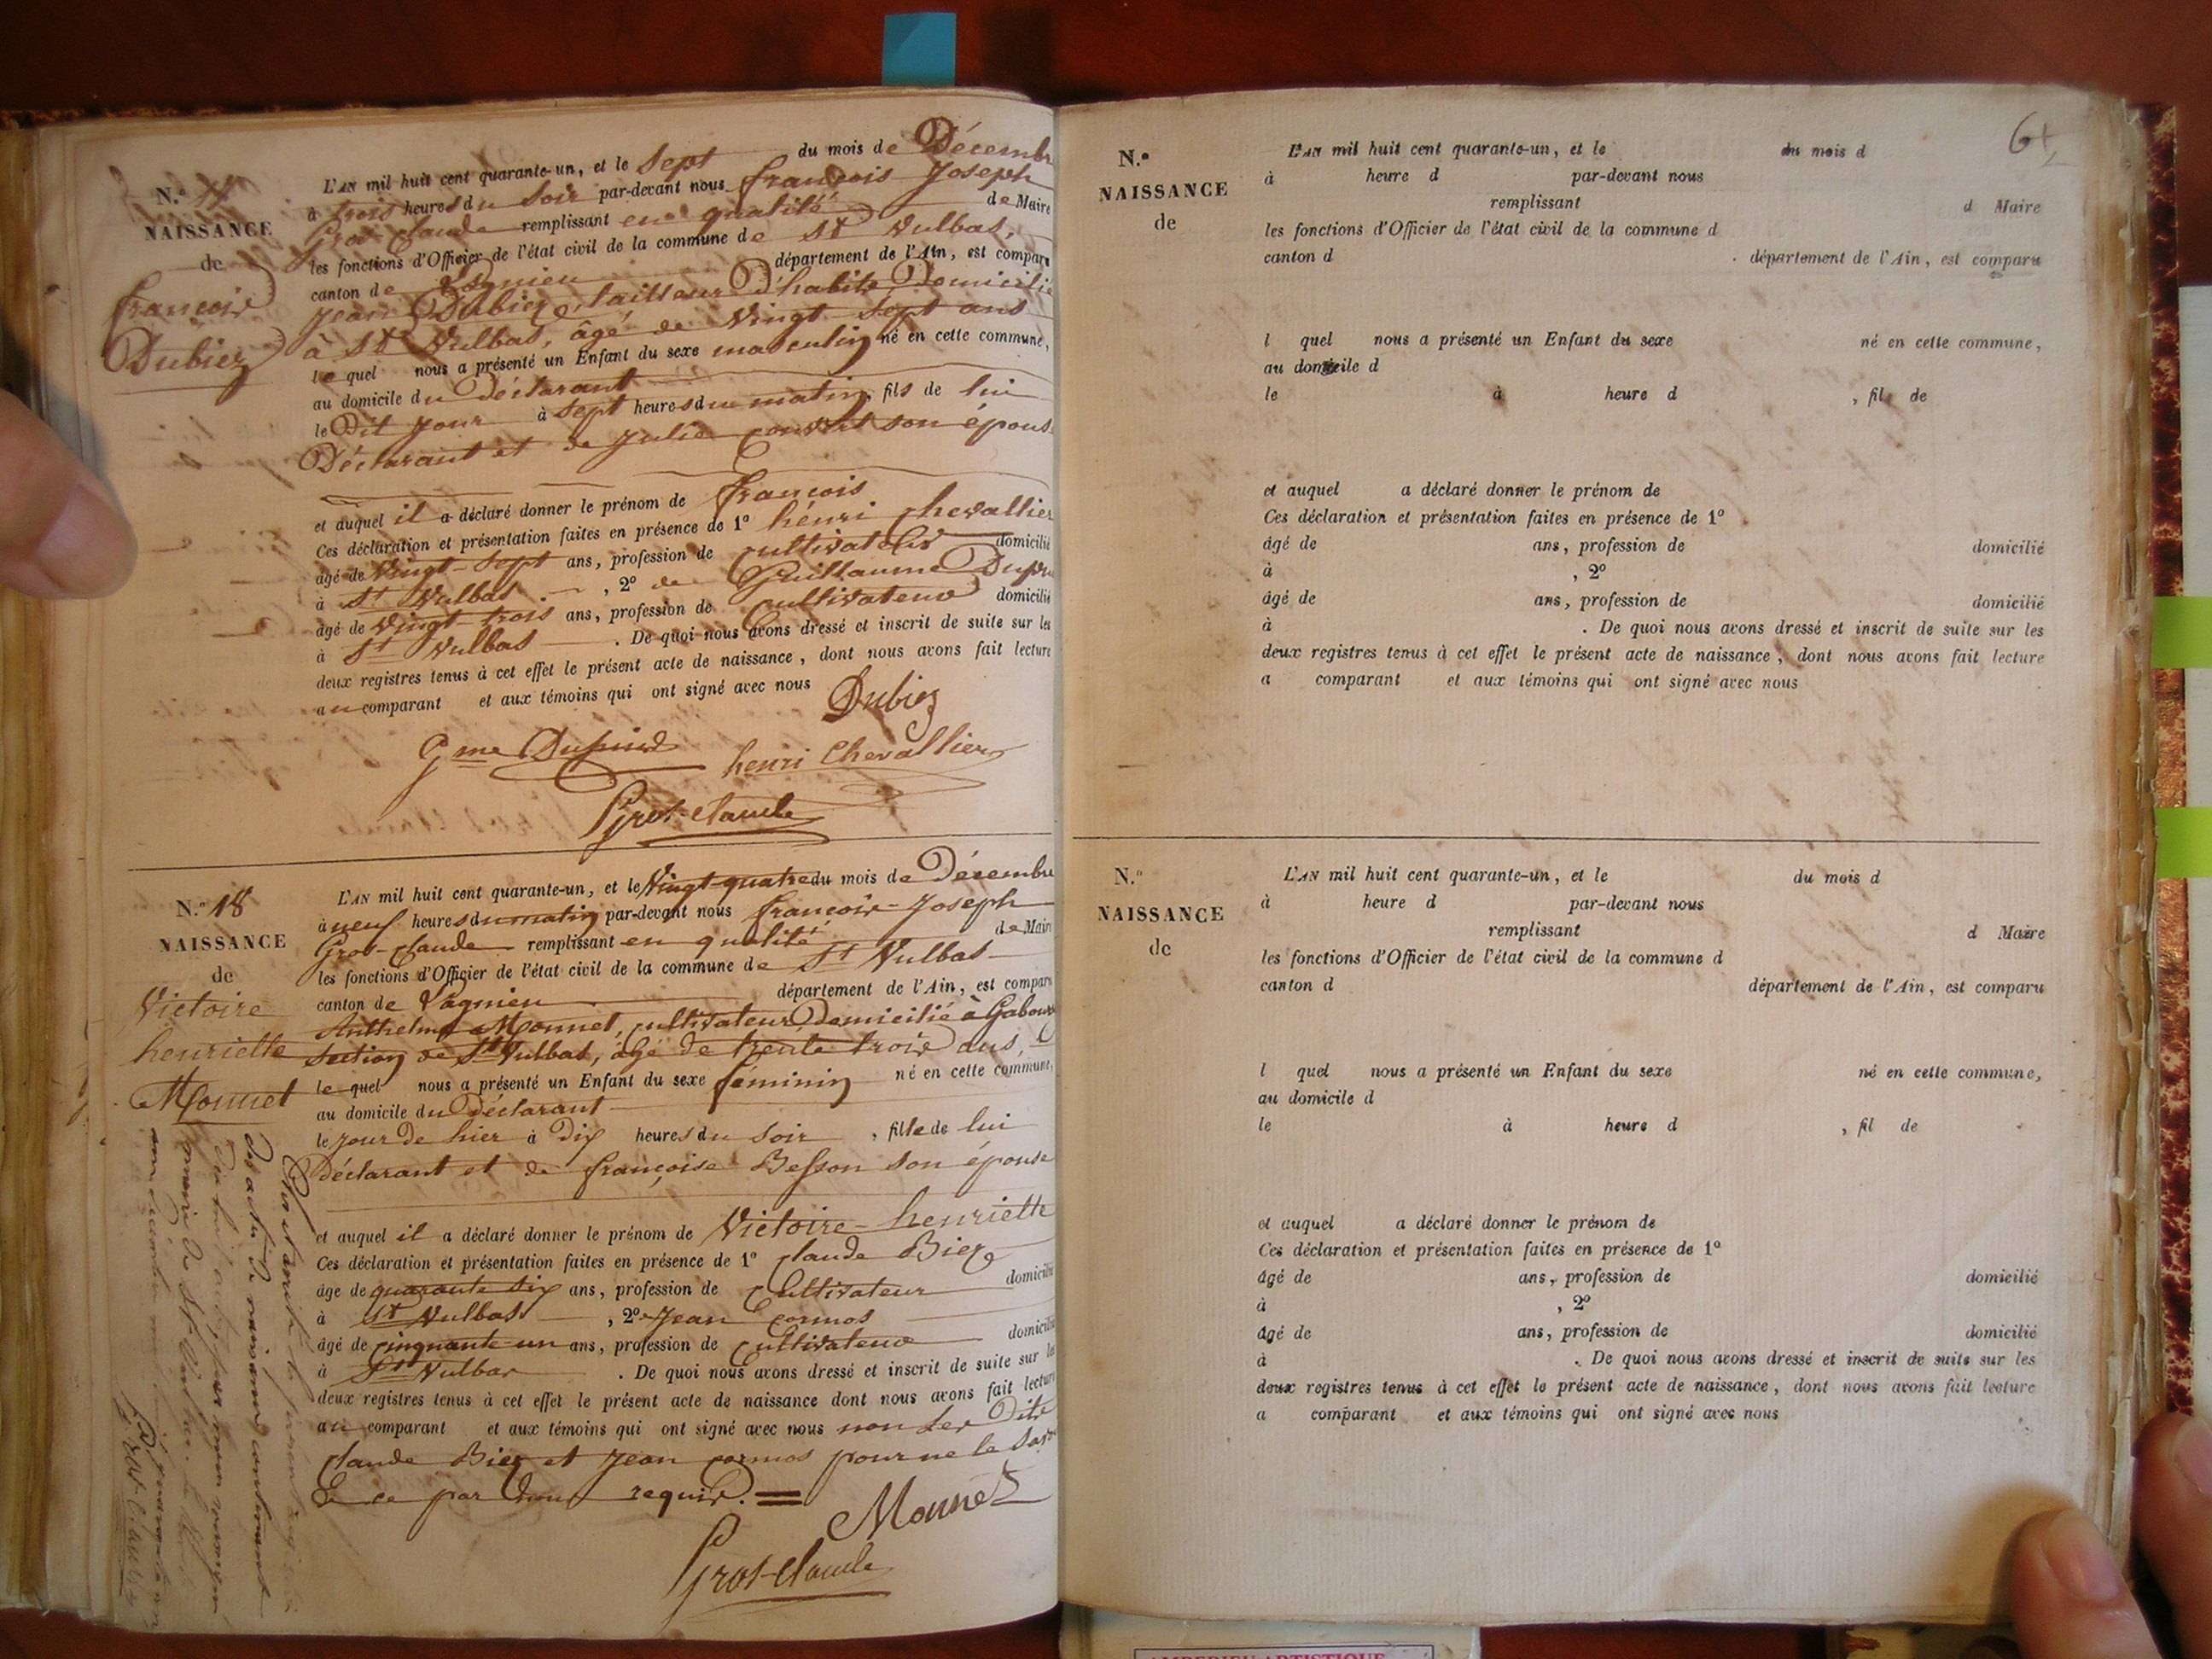 N.o 17
NAISSANCE
de
françois
Dubiez
L'AN mil huit cent quarante-un, et le sept du mois de Décembre
à trois heures du soir par-devant nous françois Joseph
Gros-Claude remplissant en qualité de Maire
les fonctions d'Officier de l'état civil de la commune de St Vulbas,
canton de Lagnieu département de l'Ain, est comparu
Jean Dubiez, tailleur d'habits, Domicilié
à St Vulbas, âgé de Vingt-Sept ans
le quel nous a présenté un Enfant du sexe masculin né en cette commune,
au domicile du Déclarant
le Dit jour à sept heures du matin, fils de lui
Déclarant et de Julie Convert son épouse
et auquel il a déclaré donner le prénom de françois
Ces déclaration et présentation faites en présence de 1o henri Chevallier
âgé de Vingt-Sept ans, profession de Cultivateur domicilié
à St Vulbas, 2o Guillaume
âgé de Vingt-trois ans, profession de Cultivateur domicilié
à St Vulbas. De quoi nous avons dressé et inscrit de suite sur les
deux registres tenus à cet effet le présent acte de naissance, dont nous avons fait lecture
au comparant et aux témoins qui ont signé avec nous
Dubiez
Gme
henri Chevallier
Gros-Claude
N.o 18
NAISSANCE
de
Victoire
henriette
Monnet
L'AN mil huit cent quarante-un, et le Vingt-quatre du mois de Décembre
à neuf heures du matin par-devant nous françois-Joseph
Gros-Claude remplissant en qualité de Maire
les fonctions d'Officier de l'état civil de la commune de St Vulbas
canton de Lagnieu département de l'Ain, est comparu
Anthelme Monnet, Cultivateur Domicilié à
section de St Vulbas, âgé de trente trois ans,
le quel nous a présenté un Enfant du sexe féminin né en cette commune,
au domicile du Déclarant
le jour de hier à Dix heures du soir, fille de lui
Déclarant et de françoise Besson son épouse
et auquel il a déclaré donner le prénom de Victoire-henriette
Ces déclaration et présentation faites en présence de 1o Claude Biez
âgé de quarante six ans, profession de Cultivateur domicilié
à St Vulbas, 2o Jean Cormos
âgé de Cinquante-un ans, profession de Cultivateur domicilié
à St Vulbas. De quoi nous avons dressé et inscrit de suite sur les
deux registres tenus à cet effet le présent acte de naissance dont nous avons fait lecture
au comparant et aux témoins qui ont signé avec nous non les Dits
Claude Biez et Jean Cormos pour ne le Savoir
de ce par nous requis.
Monnet
Gros-Claude
Gros-Claude
64
N.o
NAISSANCE
de
L'AN mil huit cent quarante-un, et le du mois d
à heure d par-devant nous
remplissant d Maire
les fonctions d'Officier de l'état civil de la commune d
canton d département de l'Ain, est comparu
l quel nous a présenté un Enfant du sexe né en cette commune,
au domicile d
le à heure d , fil de
et auquel a déclaré donner le prénom de
Ces déclaration et présentation faites en présence de 1o
âgé de ans, profession de domicilié
à , 2o
âgé de ans, profession de domicilié
à . De quoi nous avons dressé et inscrit de suite sur les
deux registres tenus à cet effet le présent acte de naissance, dont nous avons fait lecture
a comparant et aux témoins qui ont signé avec nous
N.o
NAISSANCE
de
L'AN mil huit cent quarante-un, et le du mois d
à heure d par-devant nous
remplissant d Maire
les fonctions d'Officier de l'état civil de la commune d
canton d département de l'Ain, est comparu
l quel nous a présenté un Enfant du sexe né en cette commune,
au domicile d
le à heure d , fil de
et auquel a déclaré donner le prénom de
Ces déclaration et présentation faites en présence de 1o
âgé de ans, profession de domicilié
à , 2o
âgé de ans, profession de domicilié
à . De quoi nous avons dressé et inscrit de suite sur les
deux registres tenus à cet effet le présent acte de naissance, dont nous avons fait lecture
a comparant et aux témoins qui ont signé avec nous